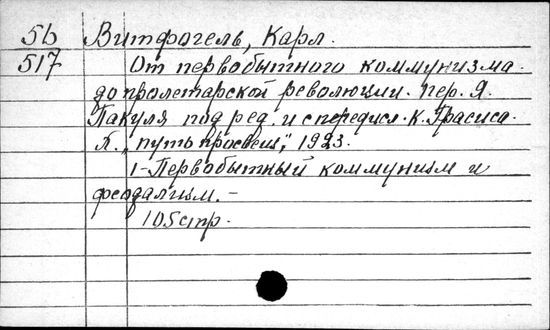 5б Витфогель, Карл.
517 От первобытного коммунизма
до пролетарской революции. пер. Я.
Пакуля под ред. и с предисл. К. Грасиса.
П. „путь просвещ", 1923.
1-Первобытный коммунизм и
феодализм.-
105 стр.